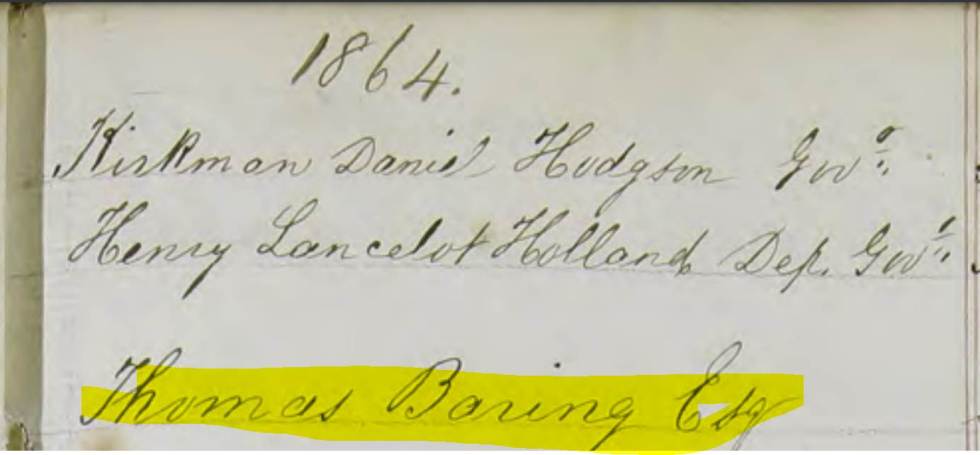 1864.
Kirkman Daniel Hodgson Govr.
Henry Lancelot Holland Dep. Govr.
Thomas Baring Esq